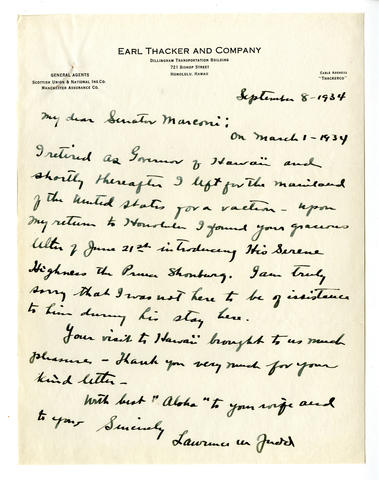 EARL THACKER AND COMPANY
DILLINGHAM TRANSPORTATION BUILDING
721 BISHOP STREET
HONOLULU, HAWAII
GENERAL AGENTS
SCOTTISH UNION & NATIONAL INS. CO.
MANCHESTER ASSURANCE CO.
CABLE ADDRESS
"THACKERCO"
September 8-1934
My dear Senator Marconi;
On March 1-1934
I retired as Governor of Hawaii and
shortly thereafter I left for the mainland
of the United States for a vaction - Upon
my return to Honolulu I found your gracious
letter of June 21st introducing His Serene
Highness the Prince Shonburg. I am truly
sorry that I was not here to be of assistance
to him during his stay here.
Your visit to Hawaii brought to us much
pleasure - Thank you very much for your
kind letter -
With best "Aloha" to your wife and
to you - Sincerely
Lawrence M Judd